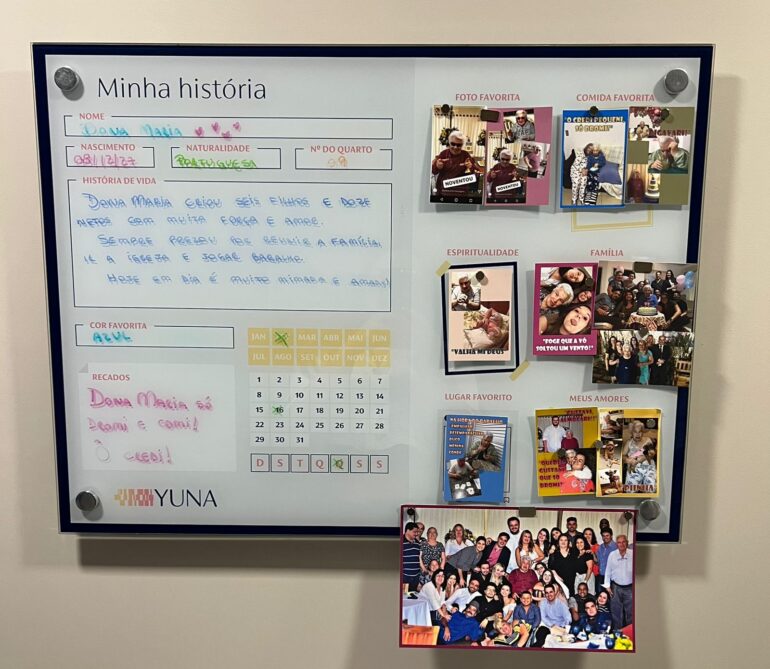 Minha história
NOME
DONA MARIA
NASCIMENTO
08/12/27
NATURALIDADE
PORTUGUESA
Nº DO QUARTO
HISTÓRIA DE VIDA
DONA MARIA CRIOU SEIS FILHOS E DOZE
NETOS COM MUITA FORÇA E AMOR.
SEMPRE PREZOU POR REUNIR A FAMÍLIA,
IR A IGREJA E JOGAR BARALHO.
HOJE EM DIA É MUITO MIMADA E AMADA!
COR FAVORITA
AZUL
JAN MAR ABR MAI JUN
JUL AGO SET OUT NOV DEZ
1 2 3 4 5 6 7
8 9 10 11 12 13 14
15 16 17 18 19 20 21
22 23 24 25 26 27 28
29 30 31
D S T Q Q S S
RECADOS
DONA MARIA SÓ
DROMI E COMI!
Ô CREDI!
YUNA
FOTO FAVORITA
NOVENTOU
NOVENTOU
COMIDA FAVORITA
"O CREDI PEQUENI
SÓ DROMI"
ESPIRITUALIDADE
"VALHA MI DEUS
FAMÍLIA
"FOGE QUE A VÓ
SOLTOU UM VENTO!"
LUGAR FAVORITO
MEUS AMORES
QUE SÓ